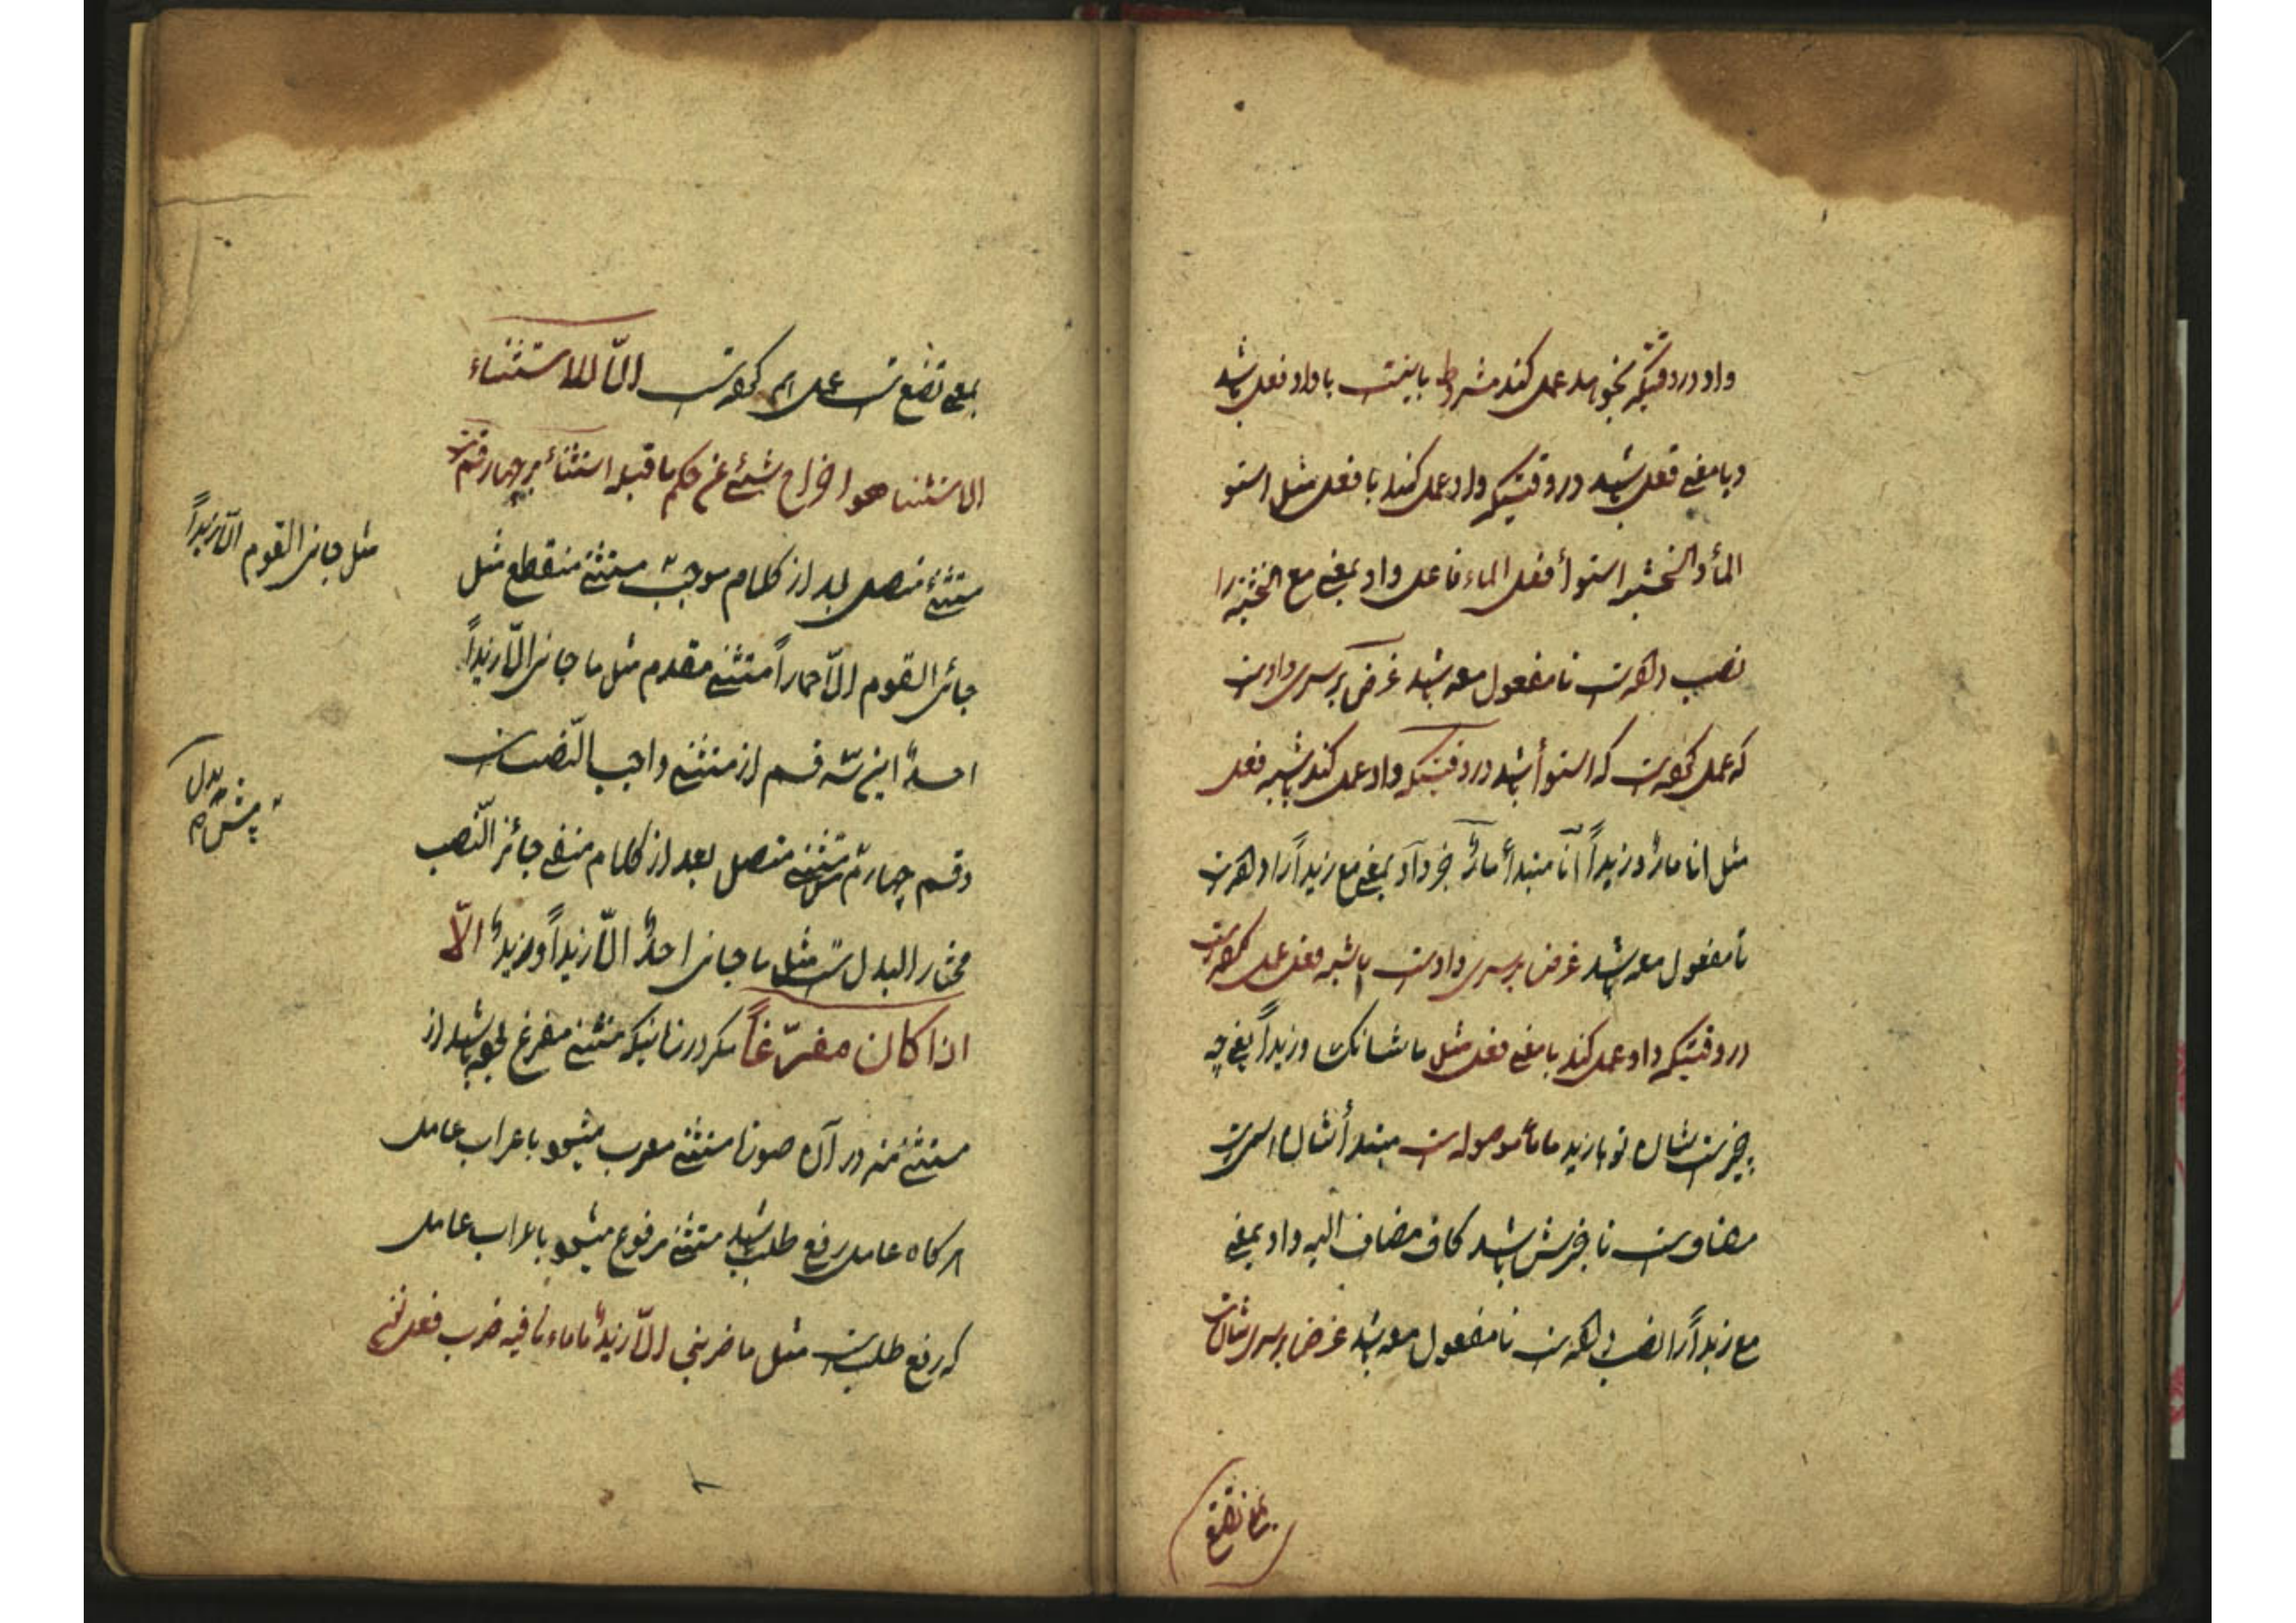 واو در وقتیکه بخواهد عمل کند مشروط باینست با واو فعل باشد
و با معنی فعل باشد در وقتیکه واو عمل کند با فعل مثل استو
الماء و الخشبه استوا فعل الماء فاعل واو بمعنی مع الخشبه را
نصب داده است تا مفعول معه باشد غرض بر سر واو است
که عمل کرده است که استوأ باشد در وقتیکه واو عمل کند باشبه فعل
مثل انا مارٌ و زیداً انا مبتدأ مارٌ خبر واو بمعنی مع زیداً را داده است
تا مفعول معه باشد غرض بر سر واو است باشبه فعل عمل کرده است
در وقتیکه واو عمل کند با معنی فعل مثل ما شانک و زیداً یعنی چه
چیز است شان تو با زید ما موصوله است مبتدأ شان اسم است
مضاف است تا خبرش باشد کاف مضاف الیه واو بمعنی
مع زیداً را نصب داده است تا مفعول معه باشد غرض بر سر شان است
بمعنی تضع
بمعنی تضع است عمل کرده است الّا للاستثناء
الاستثنا هو اخراج شیئ عن حکم ما قبله استثناء بر چهار قسم است
مستثنی متصل بعد از کلام موجب مستثنی منقطع مثل
جائنی القوم الّا حماراً مستثنی مقدم مثل ما جانی الّا زیداً
احدٌ این سه قسم از مستثنی واجب النّصب است
و قسم چهارم مستثنی متصل بعد از کلام منفی جائز النّصب
مختار البدل است مثل ما جانی احدٌ الّا زیداً و زیدٌ الّا
اذا کان مفرّغاً مگر در زمانیکه مستثنی مفرغ باشد از
مستثنی منه در آن صورت مستثنی معرب میشود باعراب عامل
هر کاه عامل رفع طلب باشد مستثنی مرفوع میشود باعراب عامل
که رفع طلب است مثل ما ضربنی الّا زیدٌ ما ماء نافیه ضرب فعل
مثل جانی القوم الّا زیداً
بدل